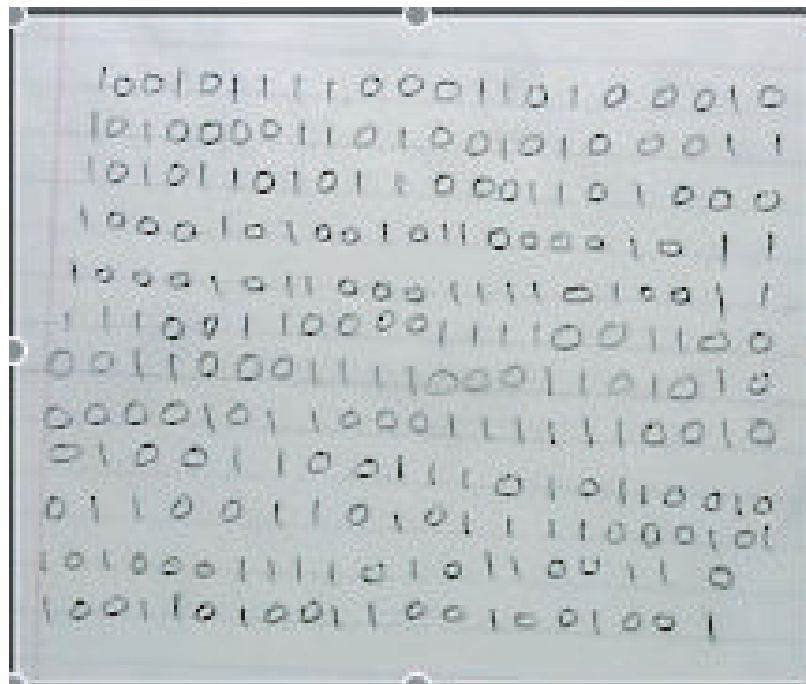 100101111100011010 00010
1010000110100101000011
10101101011000110 1000
1000101001011000010 11
10001011000111101001 1
11100110000111100 1100
0011000111100011010 10
00001011000111111 0010
010011001111010110010
011001101011110001 01
10100011110101100110
100110100110010 01001